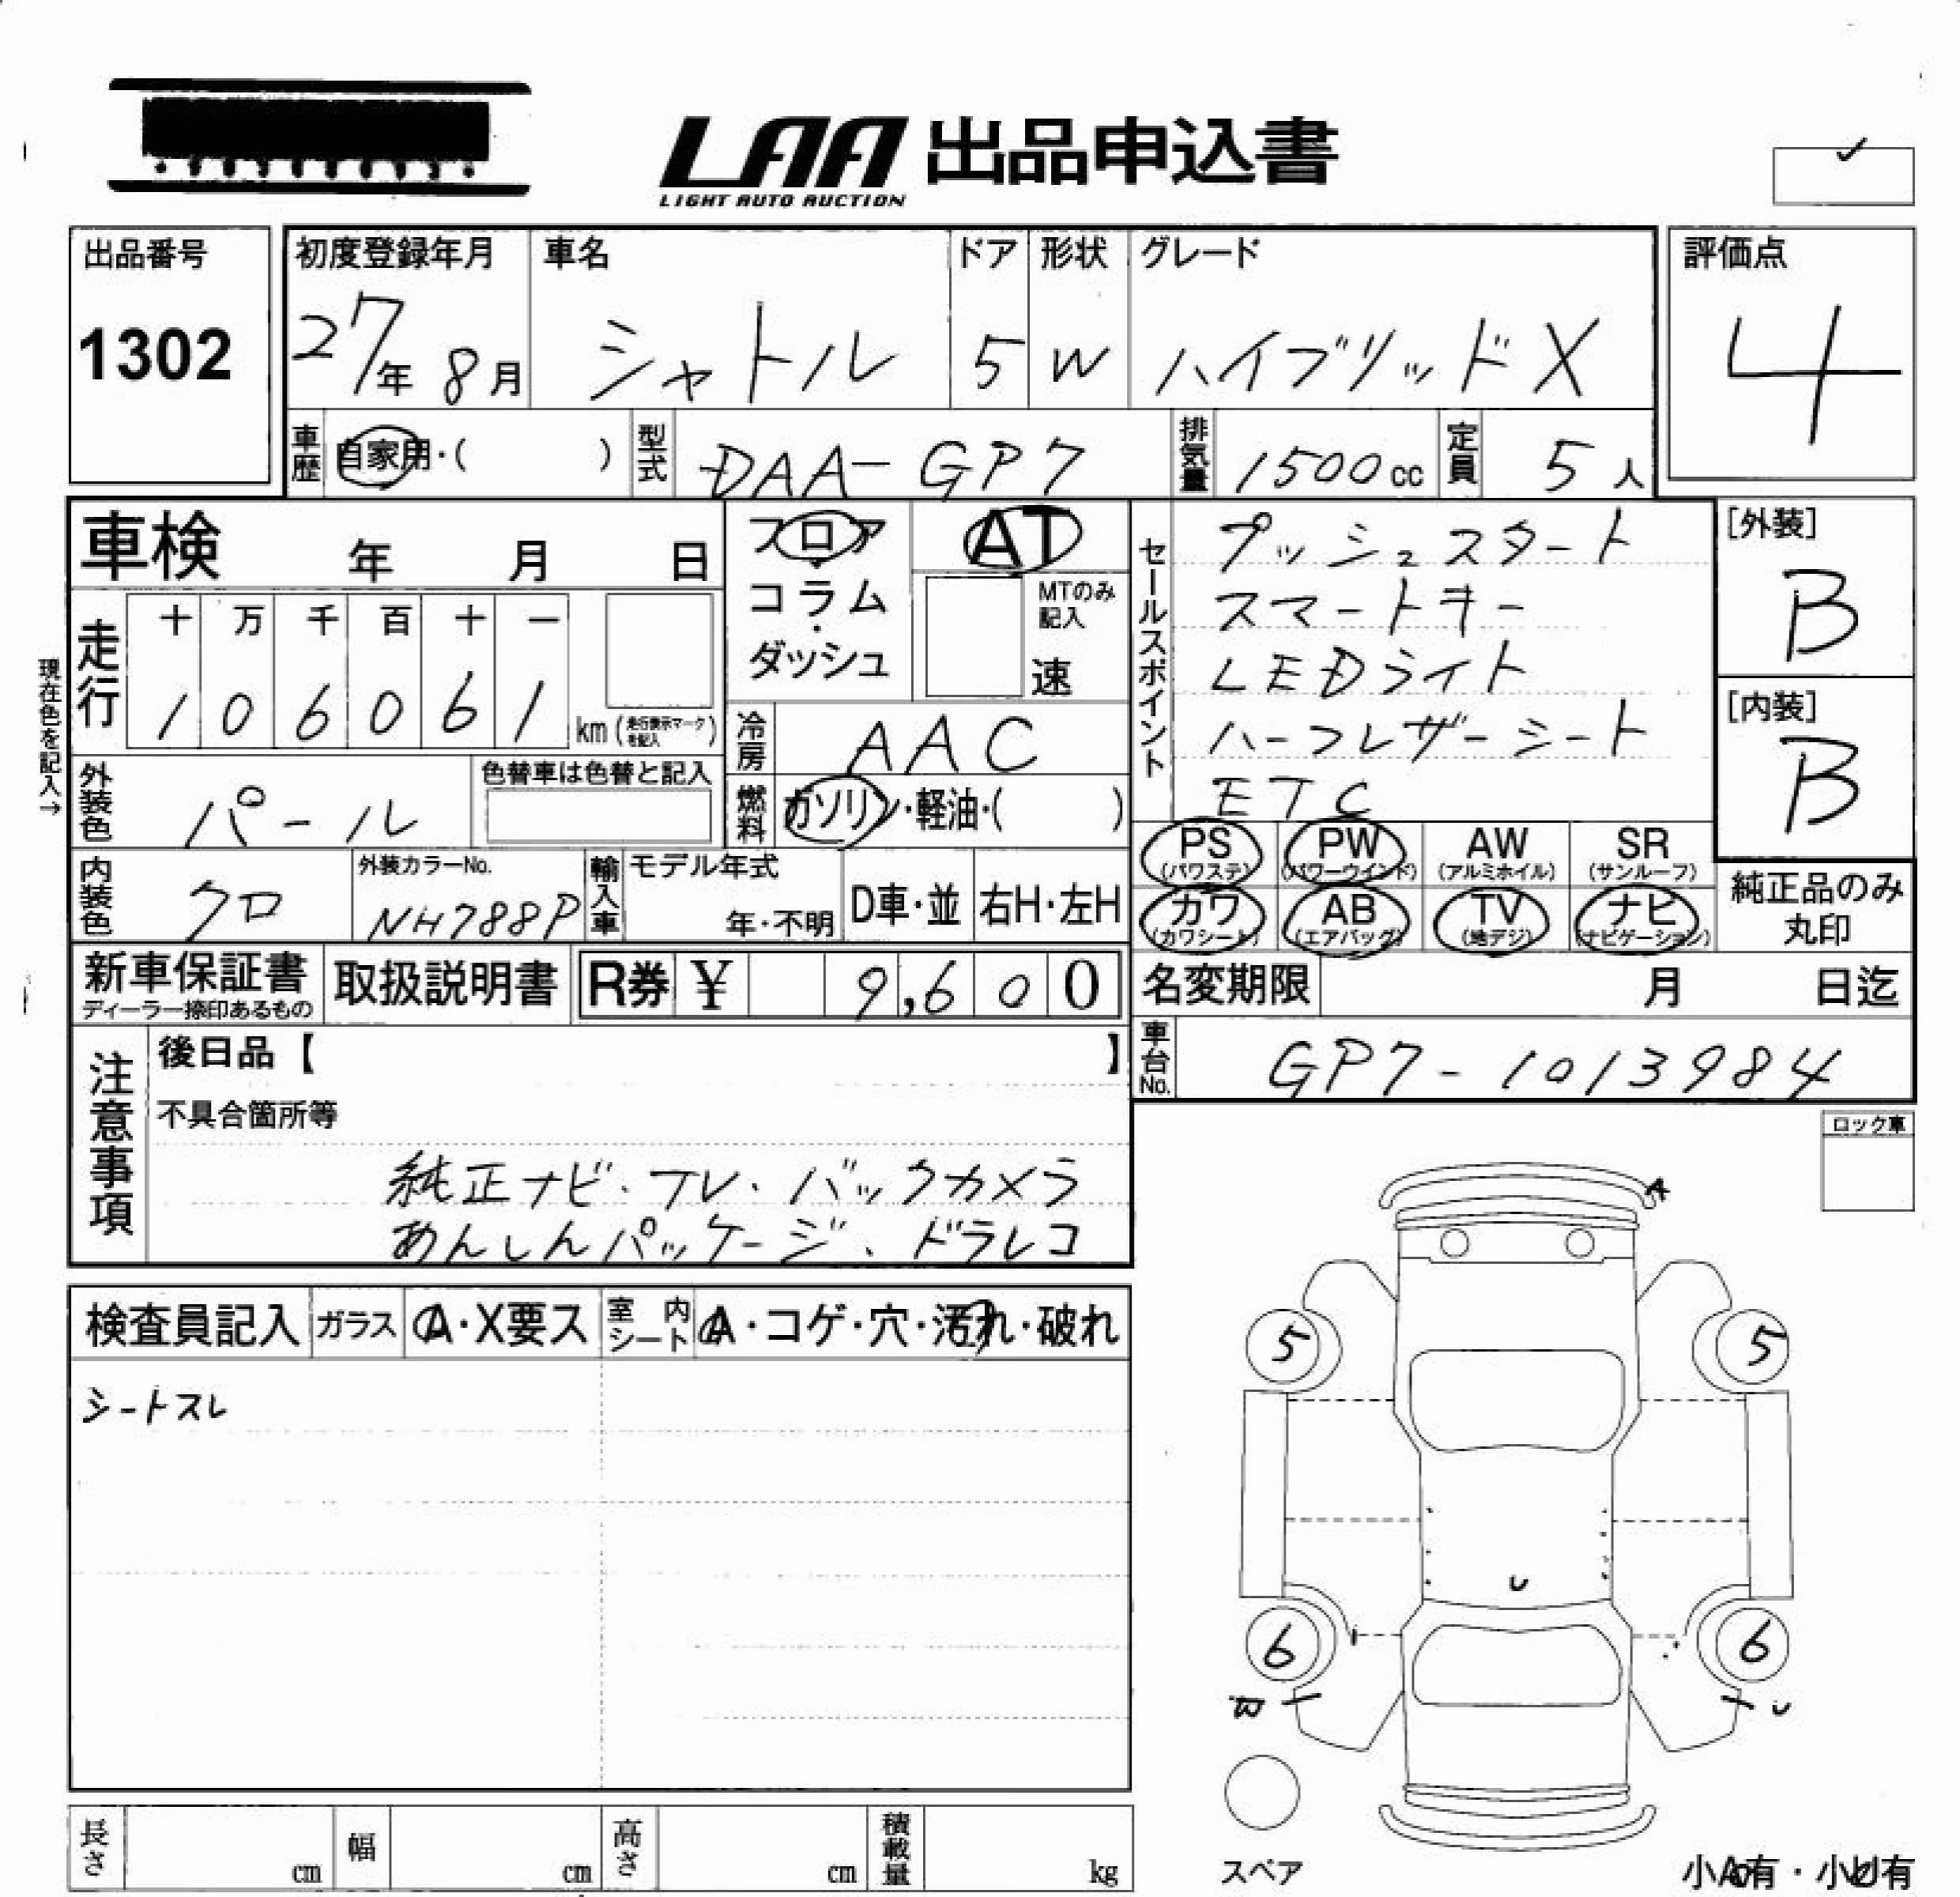 LAA 出品申込書
LIGHT AUTO AUCTION
出品番号
1302
初度登録年月
27年 8月
車名
シャトル
ドア
5
形状
W
グレード
ハイブリッドX
評価点
4
車歴 自家用・( )
型式 DAA-GP7
排気量 1500cc
定員 5人
車検 年 月 日
フロア・コラム・ダッシュ
AT
MTのみ記入
速
セールスポイント
プッシュスタート
スマートキー
LEDライト
ハーフレザーシート
ETC
[外装]
B
[内装]
B
現在色を記入→
走行
十 万 千 百 十 一
1 0 6 0 6 1 km (走行表示マークを記入)
冷房 AAC
外装色 パール
色替車は色替と記入
燃料 ガソリン・軽油・( )
PS (パワステ)
PW (パワーウインド)
AW (アルミホイル)
SR (サンルーフ)
カワ (カワシート)
AB (エアバッグ)
TV (地デジ)
ナビ (ナビゲーション)
純正品のみ
丸印
内装色 クロ
外装カラーNo.
NH788P
輸入車
モデル年式
年・不明
D車・並
右H・左H
新車保証書
ディーラー捺印あるもの
取扱説明書
R券 ¥ 9,600
名変期限 月 日迄
車台No. GP7-1013984
注意事項
後日品【 】
不具合箇所等
純正ナビ・テレ・バックカメラ
あんしんパッケージ、ドラレコ
ロック車
検査員記入
ガラス A・X要ス
室内シート A・コゲ・穴・汚れ・破れ
シートスレ
A
5 5
U
6 6
W U
スペア
小A有・小U有
長さ cm
幅 cm
高さ cm
積載量 kg